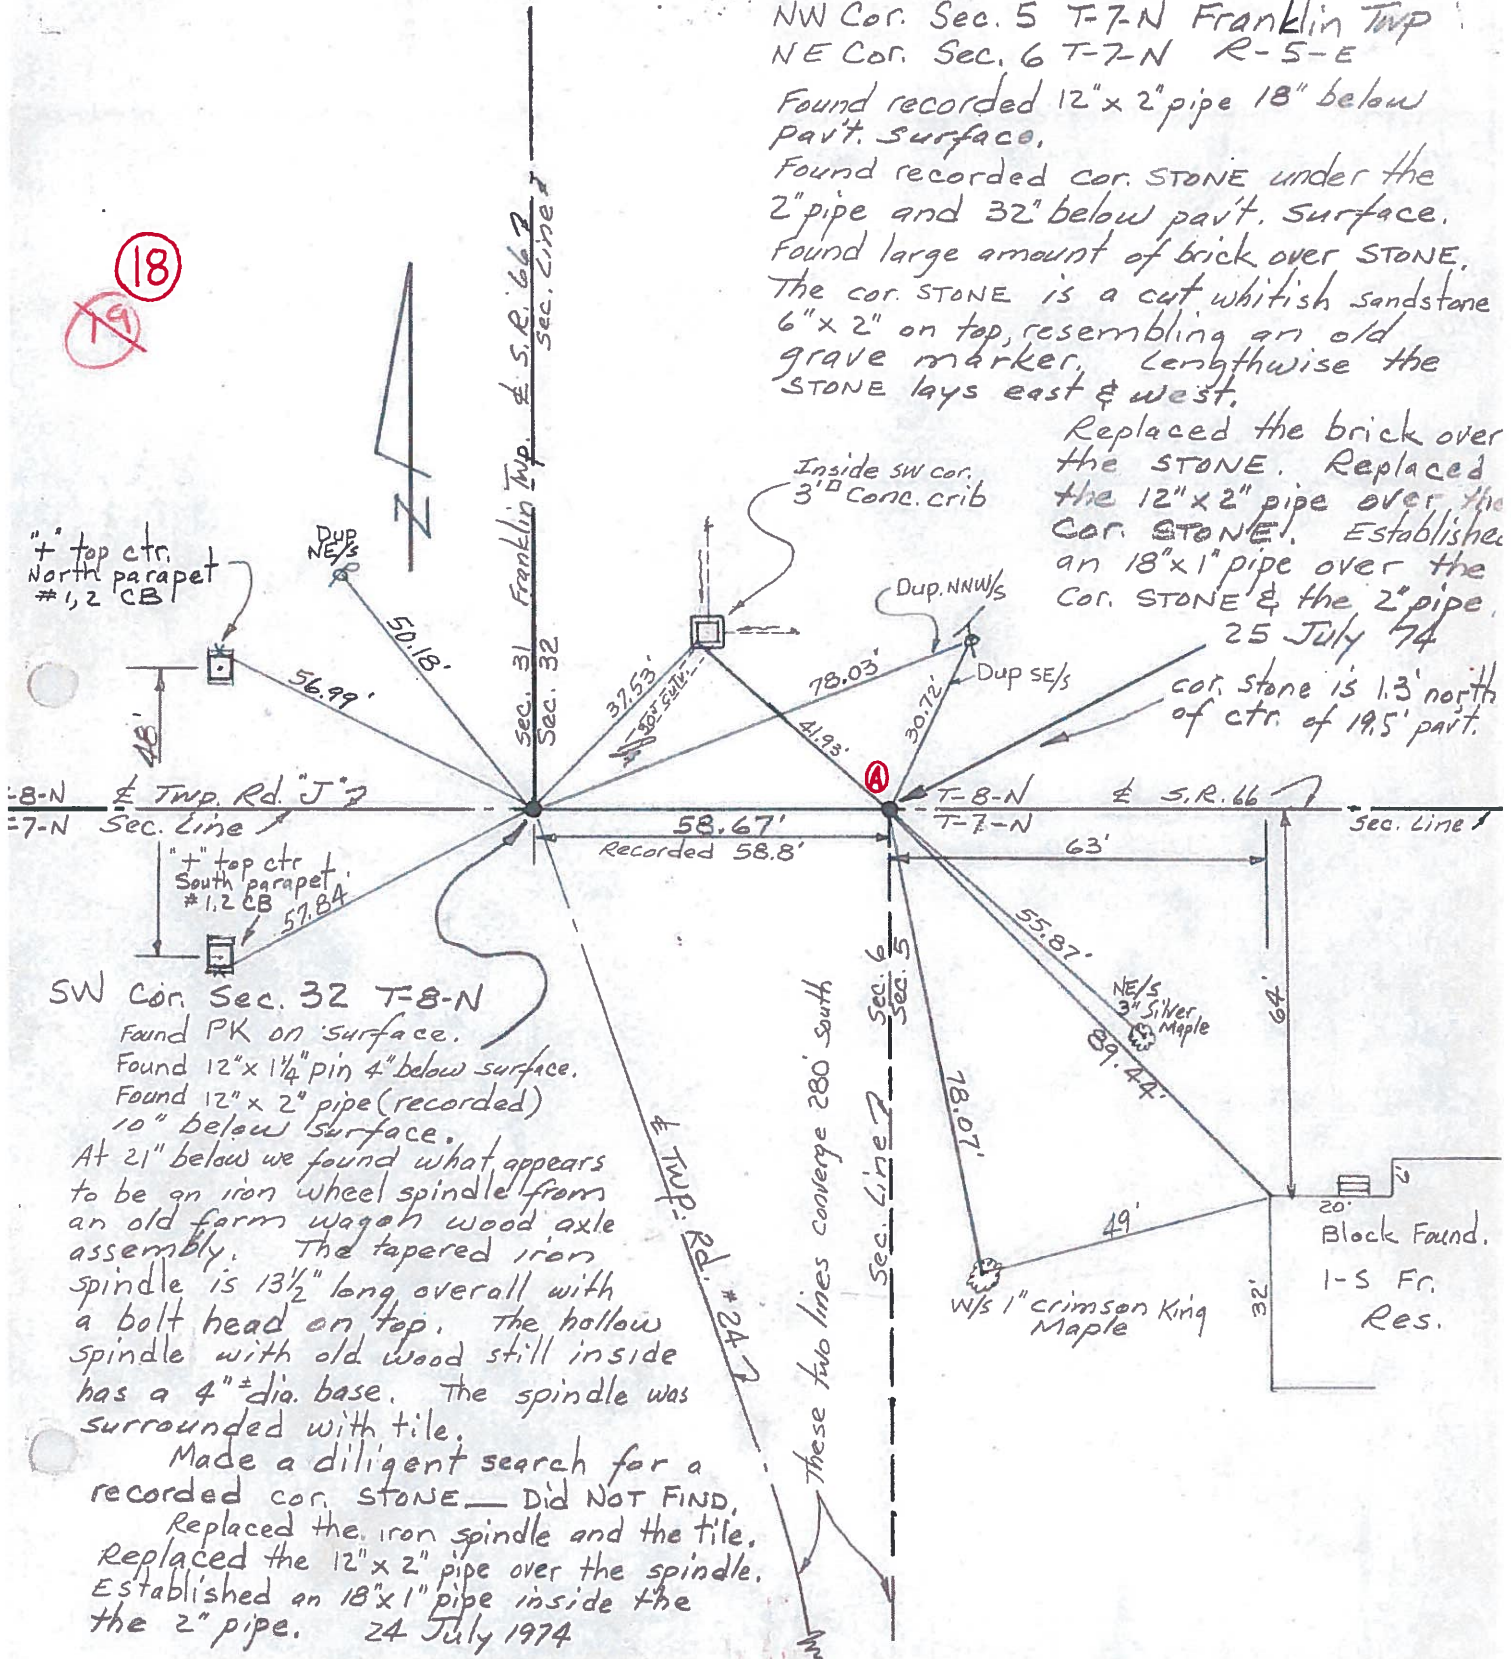 NW Cor. Sec. 5 T-7-N Franklin Twp
NE Cor. Sec. 6 T-7-N R-5-E
Found recorded 12" x 2" pipe 18" below
pav't. surface.
Found recorded cor. STONE under the
2" pipe and 32" below pav't. surface.
Found large amount of brick over STONE.
The cor. STONE is a cut whitish sandstone
6" x 2" on top, resembling an old
grave marker. Lengthwise the
STONE lays east & west.
Replaced the brick over
the STONE. Replaced
the 12" x 2" pipe over the
Cor. STONE. Established
an 18" x 1" pipe over the
Cor. STONE & the 2" pipe.
25 July 74
cor. stone is 1.3' north
of ctr. of 19.5' pav't.
18
19
N
Franklin Twp. ℄ S.R. 66
Sec. Line
Sec. 31
Sec. 32
Inside SW cor.
3'□ Conc. crib
"+" top ctr.
North parapet
#1,2 CB
Dup
NE/S
Dup. NNW/S
Dup SE/S
50.18'
56.99'
37.53'
78.03'
41.93'
30.72'
48'
A
-8-N
-7-N
℄ Twp. Rd. "J"
Sec. Line
T-8-N
T-7-N
℄ S.R. 66
Sec. Line
58.67'
Recorded 58.8'
63'
"+" top ctr
South parapet
#1,2 CB
57.84'
55.87'
NE/S
3" Silver
Maple
89.44'
64'
78.07'
49'
W/S 1" Crimson King
Maple
20'
6'
32'
Block Found.
1-S Fr.
Res.
Sec. 6
Sec. 5
Sec. Line
These two lines converge 280' south
℄ Twp. Rd. #24
SW Cor. Sec. 32 T-8-N
Found PK on surface.
Found 12" x 1¼" pin 4" below surface.
Found 12" x 2" pipe (recorded)
10" below surface.
At 21" below we found what appears
to be an iron wheel spindle from
an old farm wagon wood axle
assembly. The tapered iron
spindle is 13½" long overall with
a bolt head on top. The hollow
spindle with old wood still inside
has a 4"± dia. base. The spindle was
surrounded with tile.
Made a diligent search for a
recorded cor. STONE — Did NOT FIND.
Replaced the iron spindle and the tile.
Replaced the 12" x 2" pipe over the spindle.
Established an 18" x 1" pipe inside the
the 2" pipe. 24 July 1974